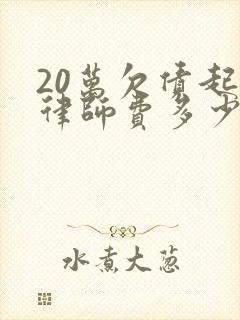 20萬欠債起
律師費多少
水煮大蔥